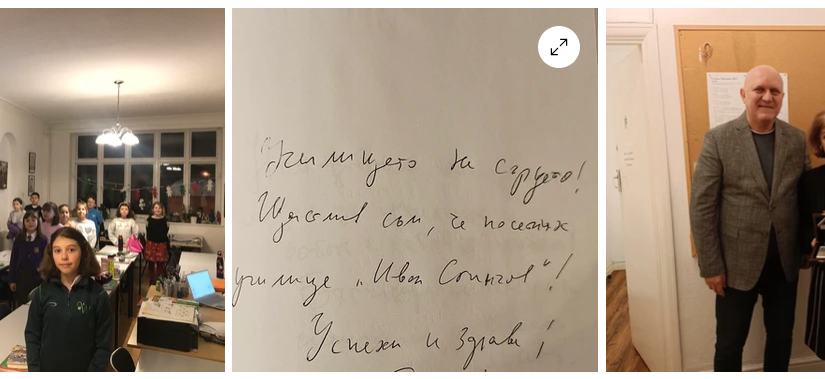 Училището на сърцето!
Щастлив съм, че посетих
училище „Иван Станчов“!
Успехи и здраве!